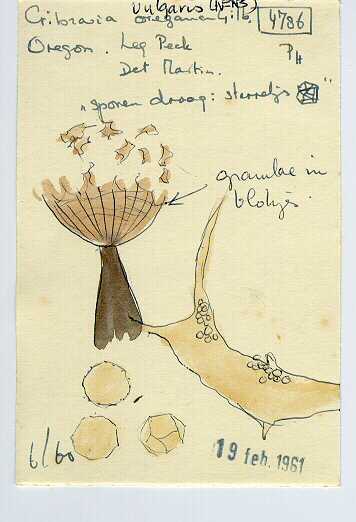 vulgaris (N.N.S)
Cribraria oregana Gilb. 4786
Oregon. Leg Peck PH
Det Martin.
„sporen droog: sterretjes "
granulae in
blokjes.
6/60
19 feb. 1961